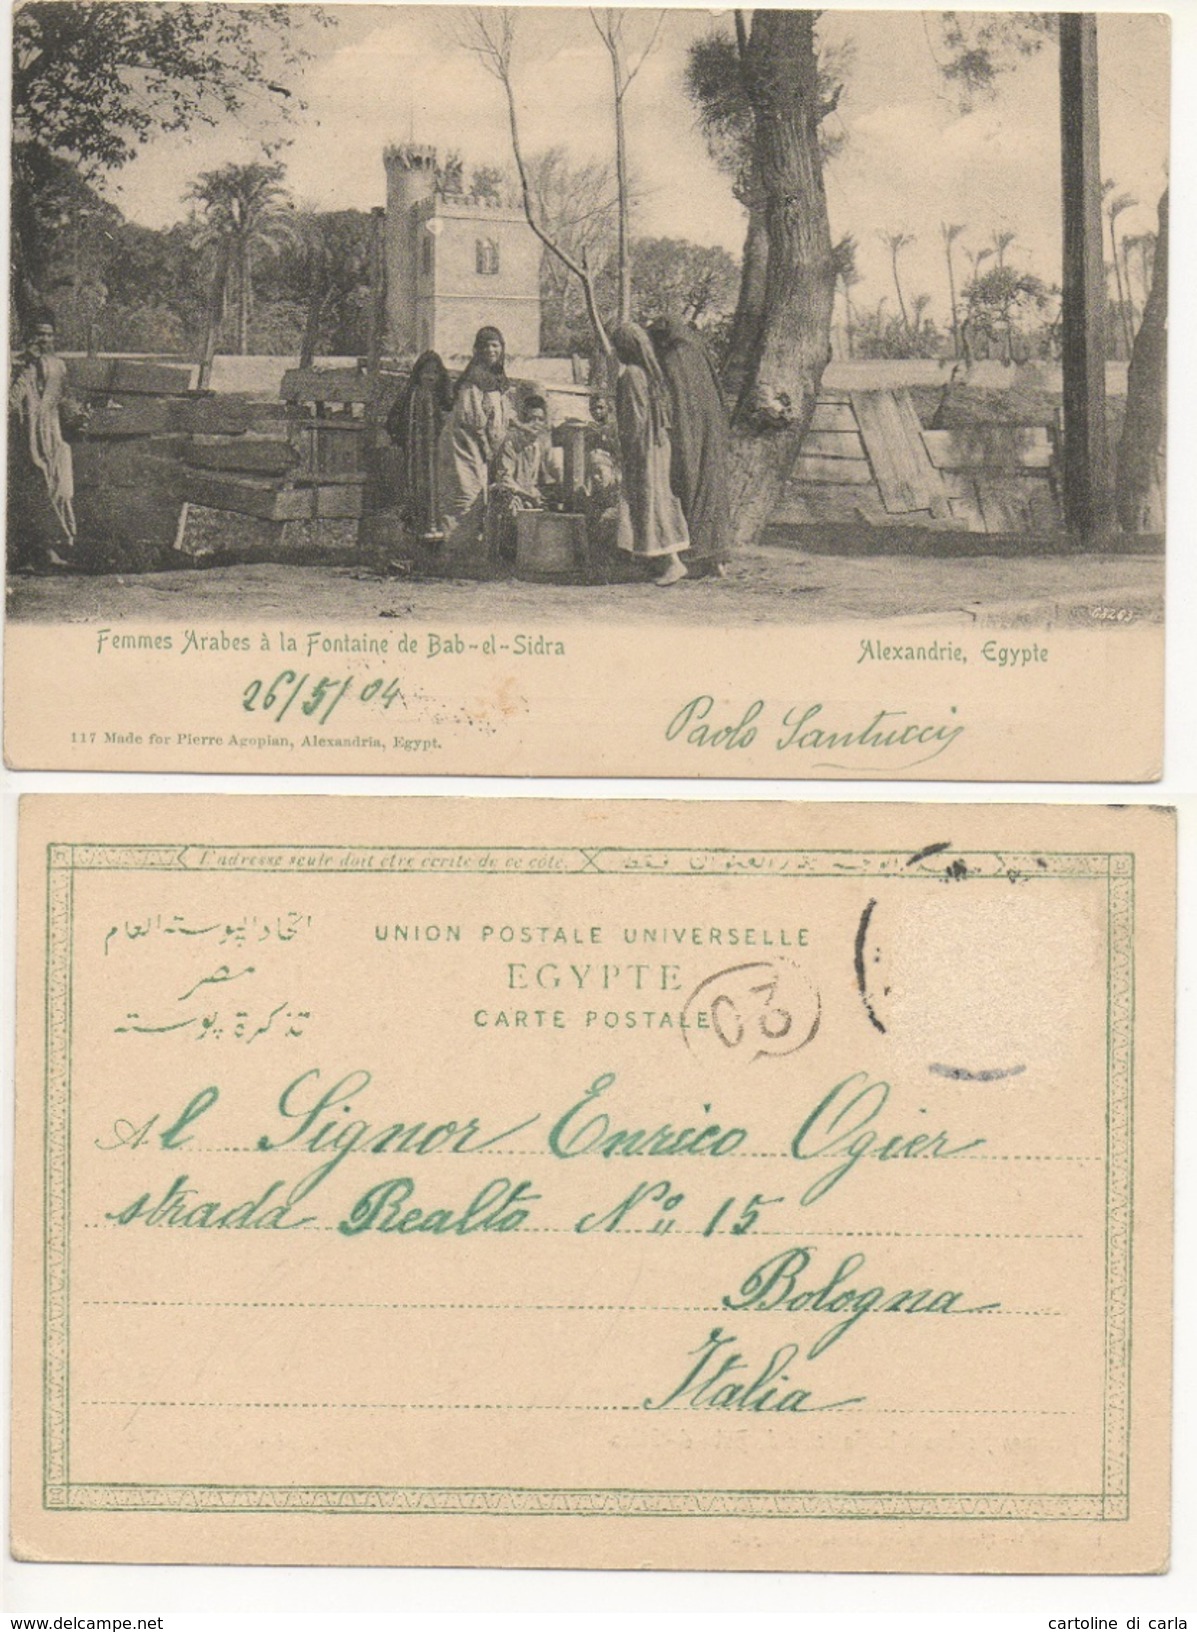 63263
Femmes Arabes à la Fontaine de Bab-el-Sidra
Alexandrie, Egypte
26/5/04
Paolo Santucci
117 Made for Pierre Agopian, Alexandria, Egypt.
L'adresse seule doit être écrite de ce côté.
اتحاد البوسته العام
مصر
تذكرة بوسته
UNION POSTALE UNIVERSELLE
EGYPTE
CARTE POSTALE
Al Signor Enrico Ogier
strada Realto Nº 15
Bologna
Italia
www.delcampe.net
cartoline di carla